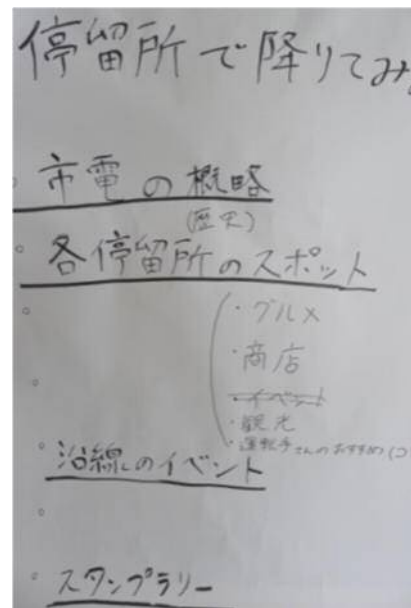 停留所で降りてみ
。市電の概略
(歴史)
。各停留所のスポット
・グルメ
・商店
・イベント
・観光
・運転手さんのおすすめ(コ
。沿線のイベント
。スタンプラリー